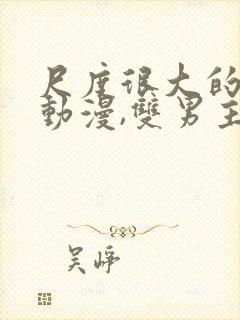 尺度很大的
動漫,雙男主
吴峥